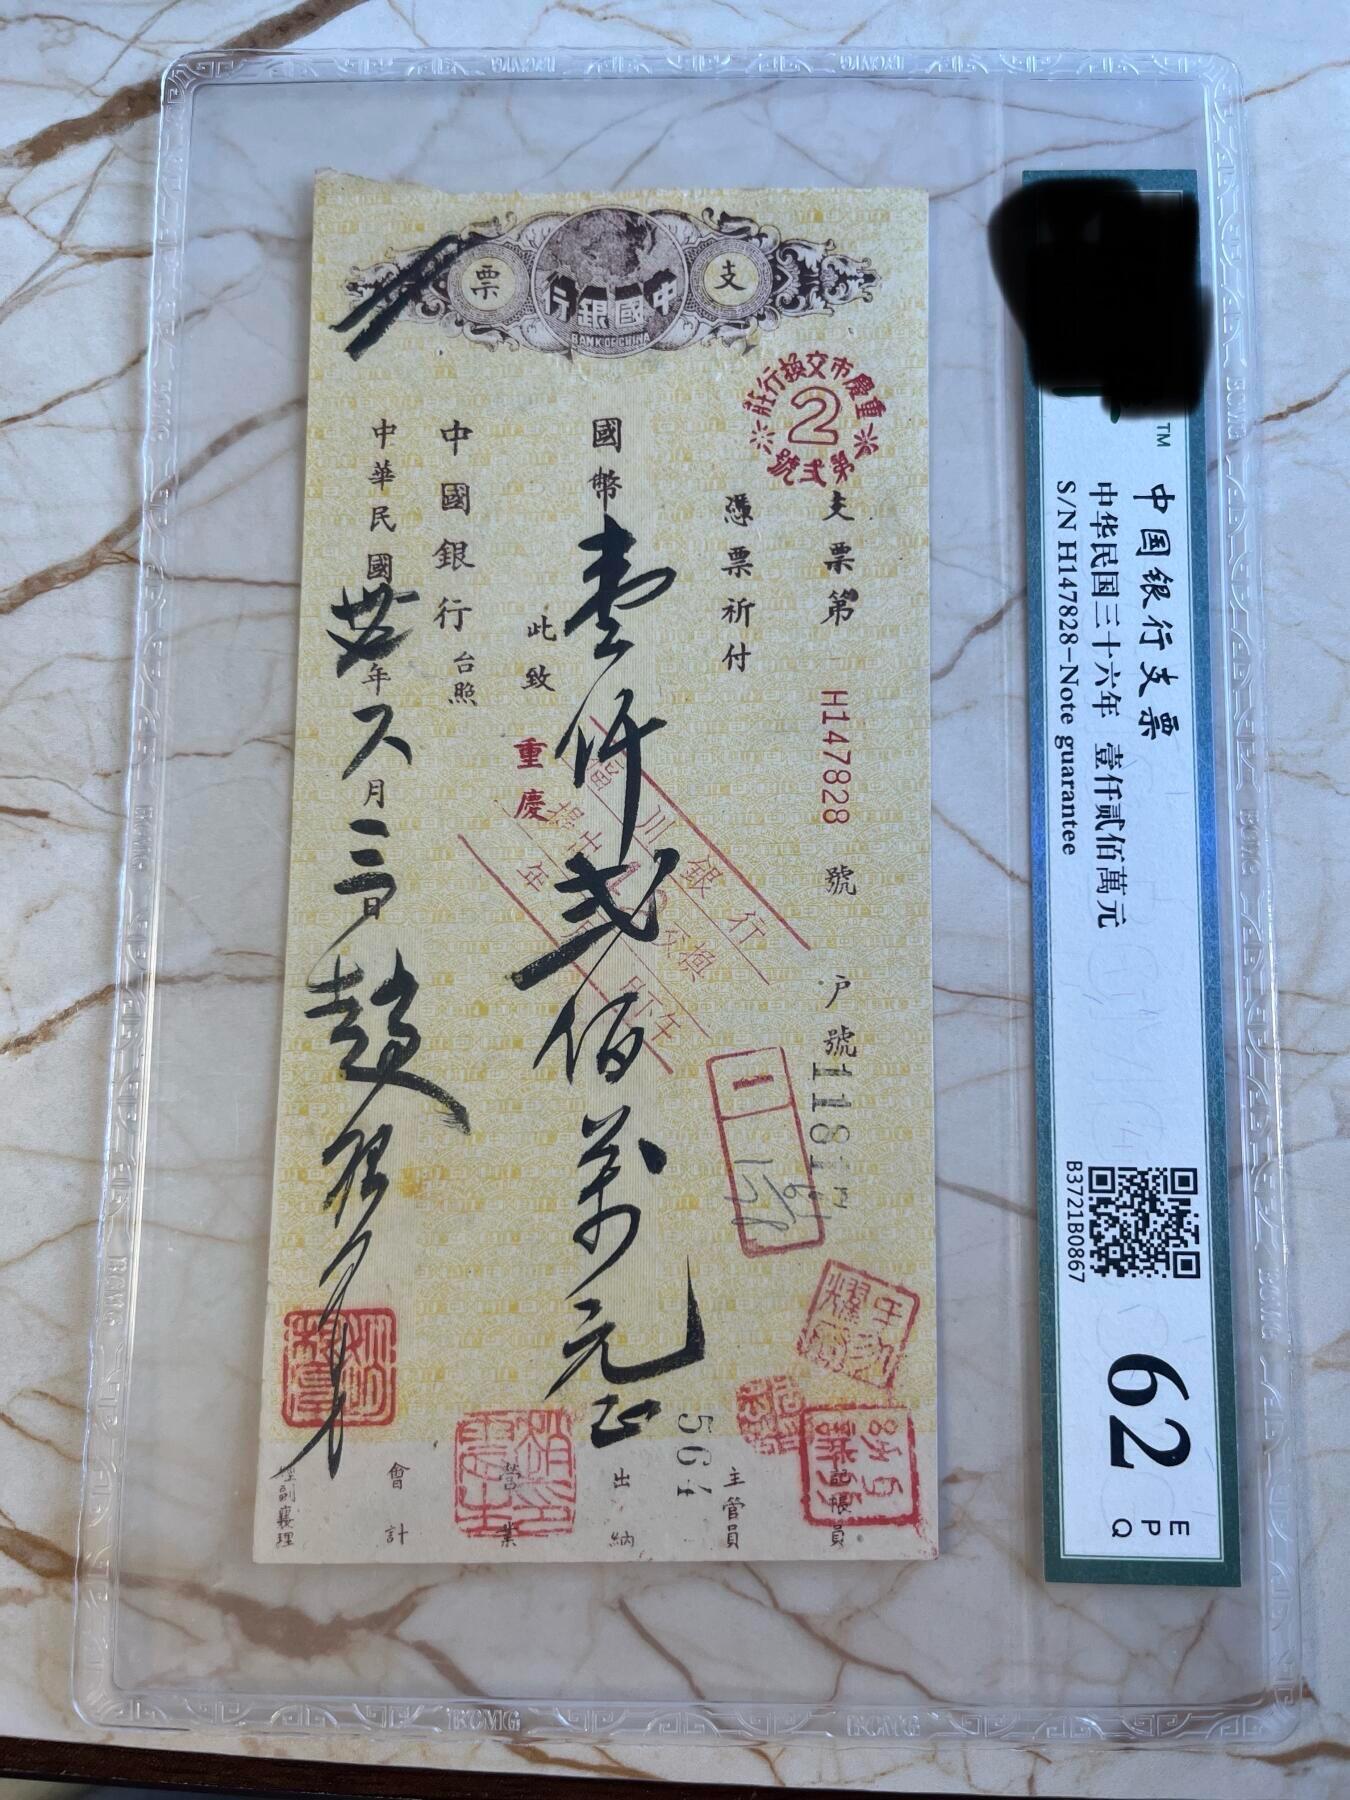 支票
中國銀行
BANK OF CHINA
重慶市交換行莊
2
第弍號
支票第 H147828 號 戶號 118
憑票祈付
國幣壹仟弍佰萬元正
此致
重慶
中國銀行 台照
中華民國卅六年 月 日
川銀行
交換
564
記帳員
主管員
出納
營業
會計
經副襄理
中国银行支票
中华民国三十六年 壹仟贰佰萬元
S/N H147828-Note guarantee
TM
B3721B0867
62
EPQ
BCMG